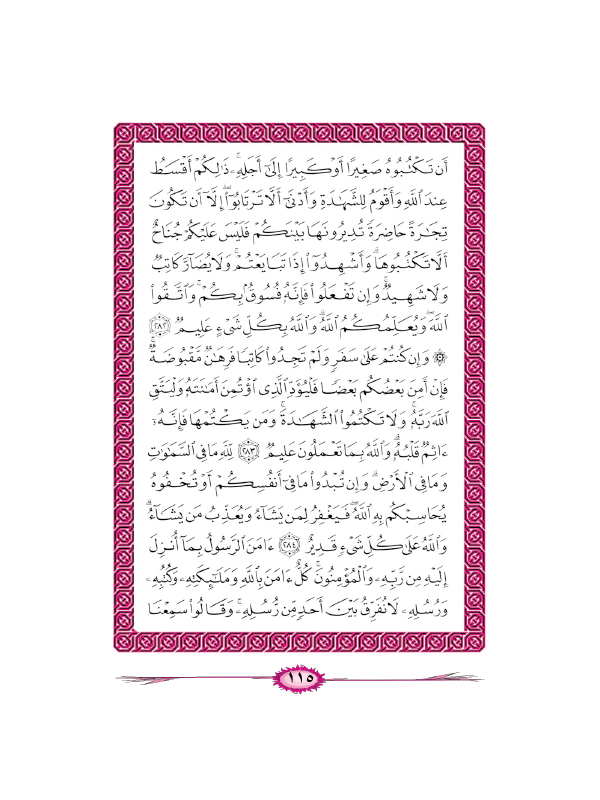 أَن تَكْتُبُوهُ صَغِيرًا أَوْ كَبِيرًا إِلَىٰٓ أَجَلِهِۦۚ ذَٰلِكُمْ أَقْسَطُ
عِندَ ٱللَّهِ وَأَقْوَمُ لِلشَّهَٰدَةِ وَأَدْنَىٰٓ أَلَّا تَرْتَابُوٓا۟ۖ إِلَّآ أَن تَكُونَ
تِجَٰرَةً حَاضِرَةً تُدِيرُونَهَا بَيْنَكُمْ فَلَيْسَ عَلَيْكُمْ جُنَاحٌ
أَلَّا تَكْتُبُوهَاۗ وَأَشْهِدُوٓا۟ إِذَا تَبَايَعْتُمْۚ وَلَا يُضَآرَّ كَاتِبٌ
وَلَا شَهِيدٌۚ وَإِن تَفْعَلُوا۟ فَإِنَّهُۥ فُسُوقٌۢ بِكُمْۗ وَٱتَّقُوا۟
ٱللَّهَۖ وَيُعَلِّمُكُمُ ٱللَّهُۗ وَٱللَّهُ بِكُلِّ شَىْءٍ عَلِيمٌ ﴿٢٨٢﴾
۞ وَإِن كُنتُمْ عَلَىٰ سَفَرٍ وَلَمْ تَجِدُوا۟ كَاتِبًا فَرِهَٰنٌ مَّقْبُوضَةٌۖ
فَإِنْ أَمِنَ بَعْضُكُم بَعْضًا فَلْيُؤَدِّ ٱلَّذِى ٱؤْتُمِنَ أَمَٰنَتَهُۥ وَلْيَتَّقِ
ٱللَّهَ رَبَّهُۥۗ وَلَا تَكْتُمُوا۟ ٱلشَّهَٰدَةَۚ وَمَن يَكْتُمْهَا فَإِنَّهُۥٓ
ءَاثِمٌ قَلْبُهُۥۗ وَٱللَّهُ بِمَا تَعْمَلُونَ عَلِيمٌ ﴿٢٨٣﴾ لِّلَّهِ مَا فِى ٱلسَّمَٰوَٰتِ
وَمَا فِى ٱلْأَرْضِۗ وَإِن تُبْدُوا۟ مَا فِىٓ أَنفُسِكُمْ أَوْ تُخْفُوهُ
يُحَاسِبْكُم بِهِ ٱللَّهُۖ فَيَغْفِرُ لِمَن يَشَآءُ وَيُعَذِّبُ مَن يَشَآءُۗ
وَٱللَّهُ عَلَىٰ كُلِّ شَىْءٍ قَدِيرٌ ﴿٢٨٤﴾ ءَامَنَ ٱلرَّسُولُ بِمَآ أُنزِلَ
إِلَيْهِ مِن رَّبِّهِۦ وَٱلْمُؤْمِنُونَۚ كُلٌّ ءَامَنَ بِٱللَّهِ وَمَلَٰٓئِكَتِهِۦ وَكُتُبِهِۦ
وَرُسُلِهِۦ لَا نُفَرِّقُ بَيْنَ أَحَدٍ مِّن رُّسُلِهِۦۚ وَقَالُوا۟ سَمِعْنَا
١١٥